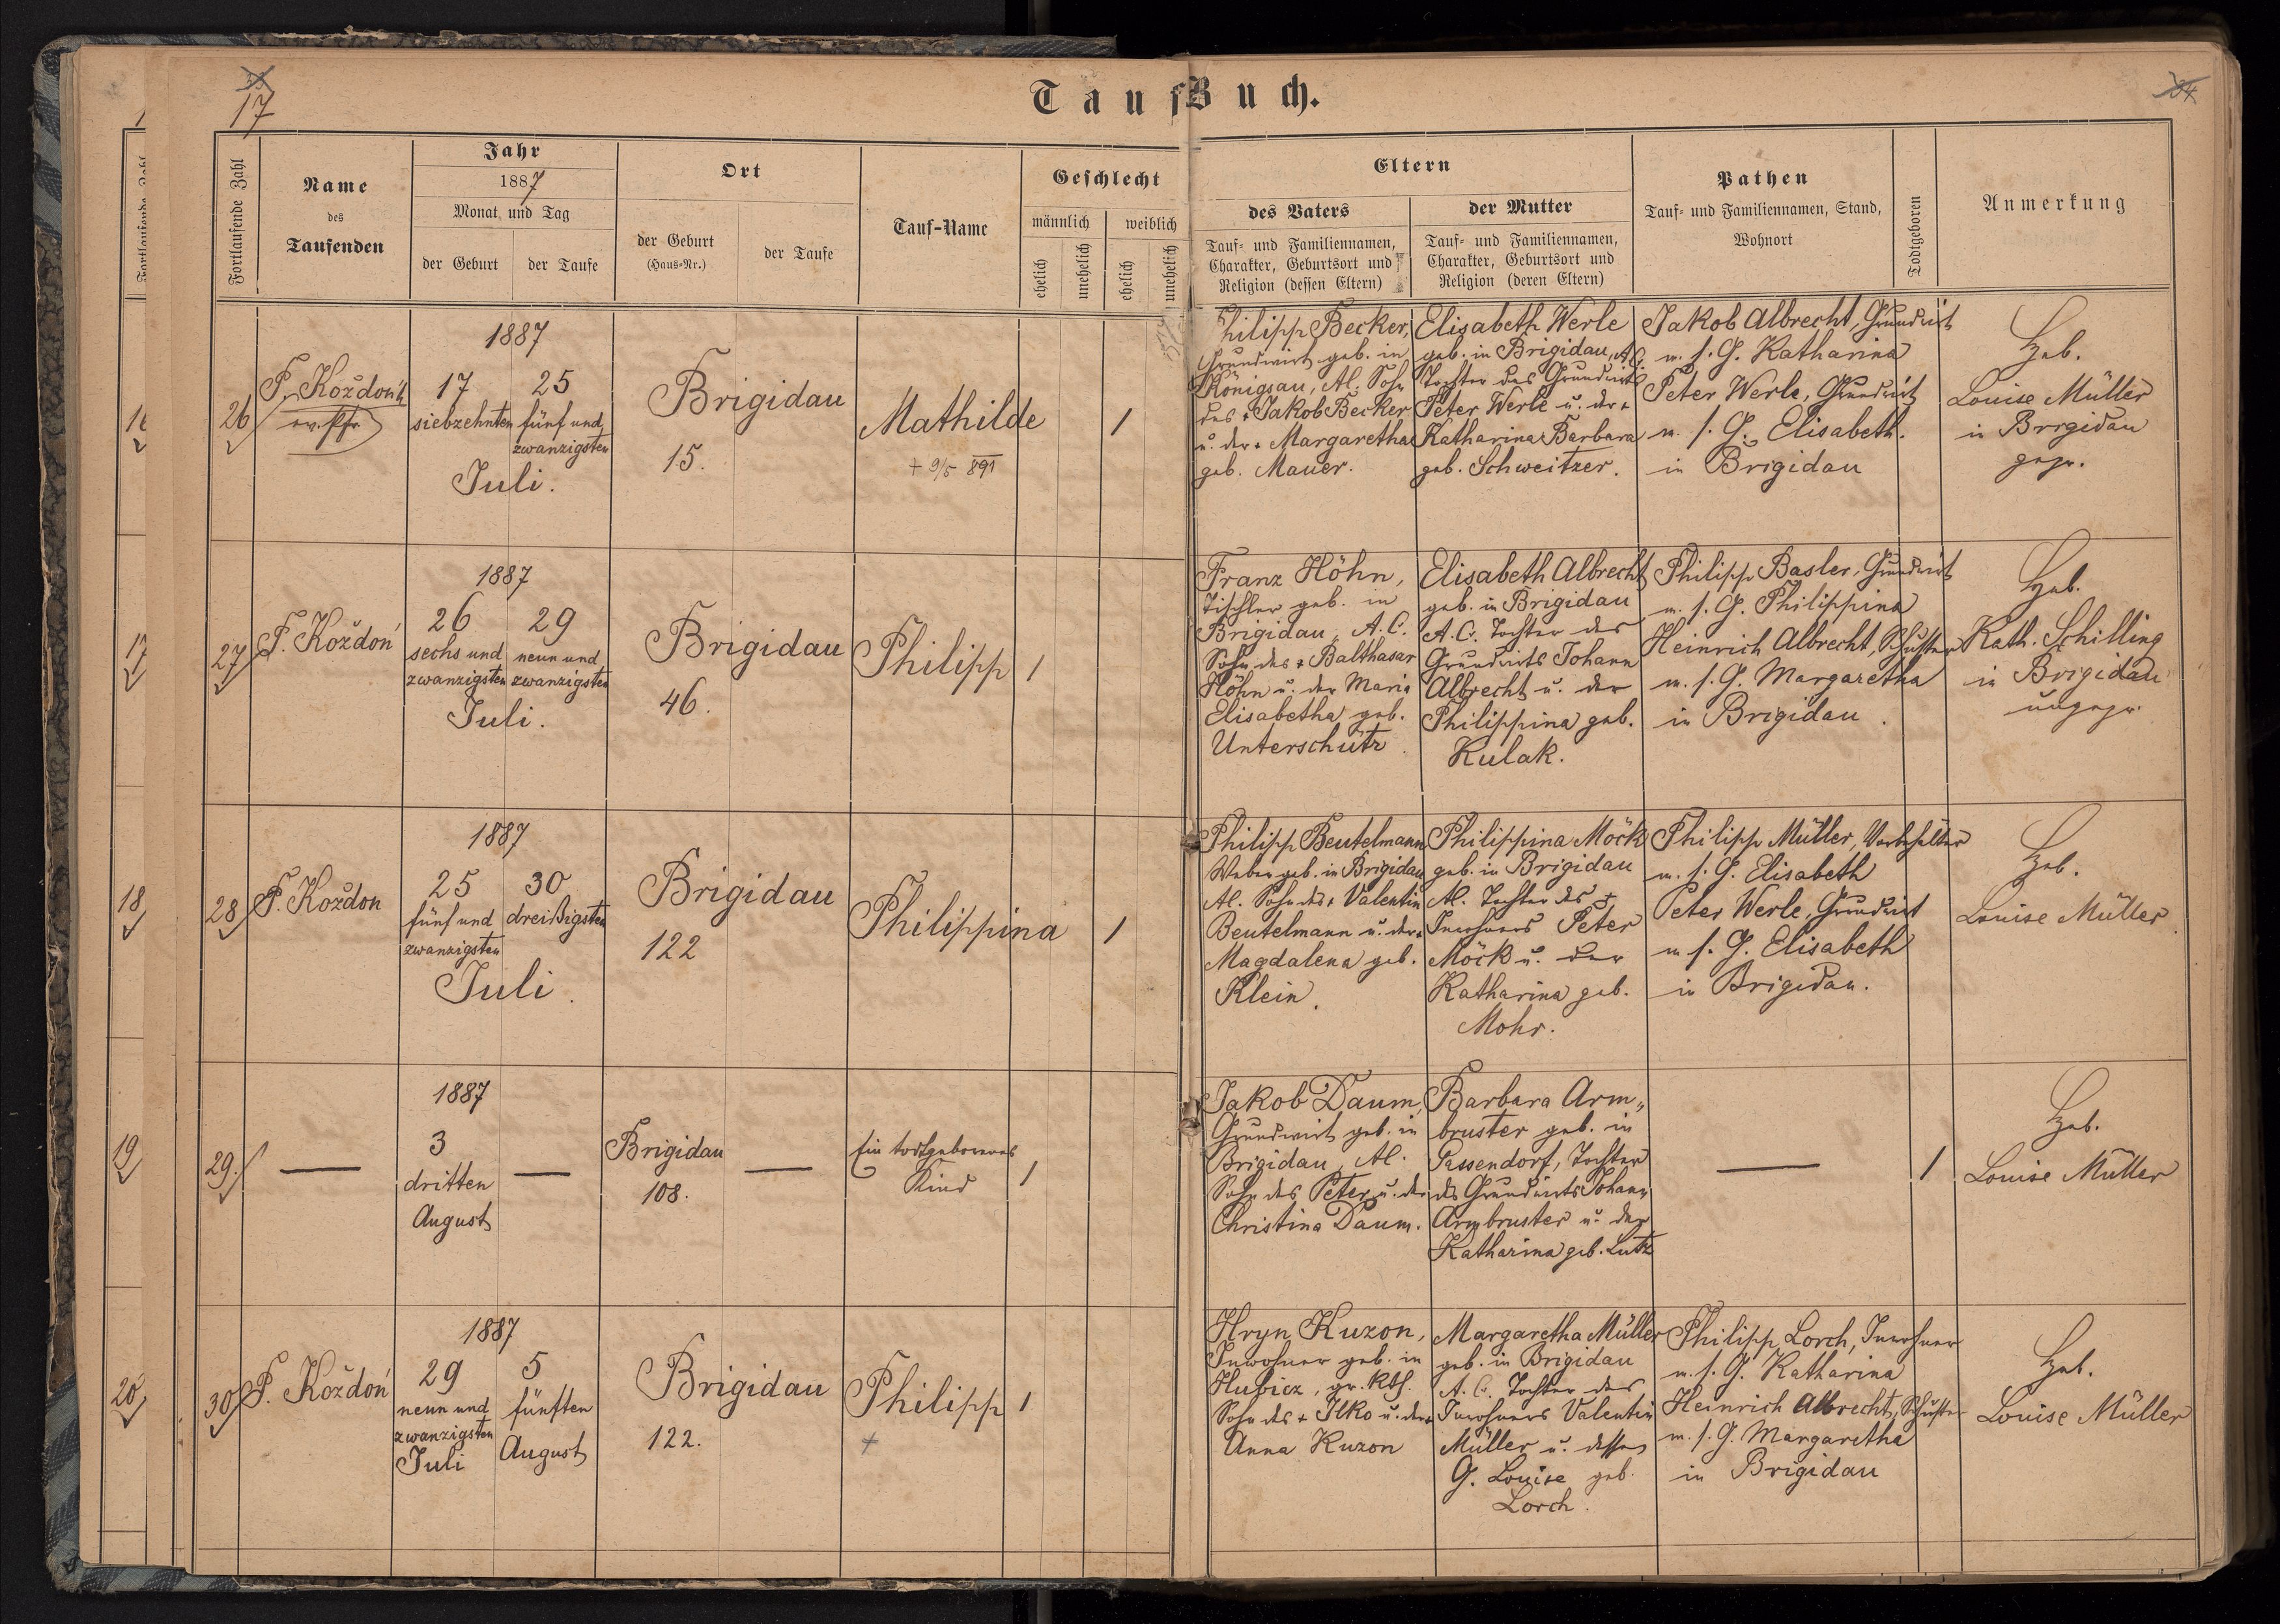 17
34
Tauf Buch.
Fortlaufende Zahl
Name
des
Taufenden
Jahr
1887
Monat und Tag
der Geburt
der Taufe
Ort
der Geburt
(Haus-Nr.)
der Taufe
Tauf-Name
Geschlecht
männlich
weiblich
ehelich
unehelich
ehelich
unehelich
Eltern
des Vaters
Tauf- und Familiennamen,
Charakter, Geburtsort und
Religion (dessen Eltern)
der Mutter
Tauf- und Familiennamen,
Charakter, Geburtsort und
Religion (deren Eltern)
Pathen
Tauf- und Familiennamen, Stand,
Wohnort
Todtgeboren
Anmerkung
16
26
F. Koždoń
ev. Pfr
1887
17
siebzehnten
25
fünf und
zwanzigsten
Juli.
Brigidau
15.
Mathilde
+ 9/5 891
1
Philipp Becker,
Grundwirt geb. in
Königsau, A.C. Sohn
des + Jakob Becker
u. der + Margaretha
geb. Mauer.
Elisabeth Werle
geb. in Brigidau, A.C.
Tochter des Grundwirts
Peter Werle u. der +
Katharina Barbara
geb. Schweitzer.
Jakob Albrecht, Grundwirt
m. s. G. Katharina
Peter Werle, Grundwirt
m. s. G. Elisabeth.
in Brigidau
Heb.
Louise Müller
in Brigidau
gepr.
17
27
F. Koždoń
1887
26
sechs und
zwanzigsten
29
neun und
zwanzigsten
Juli.
Brigidau
46.
Philipp
1
Franz Höhn,
Tischler geb. in
Brigidau, A.C.
Sohn des + Balthasar
Höhn u. der Maria
Elisabetha geb.
Unterschütz.
Elisabeth Albrecht
geb. in Brigidau
A.C. Tochter des
Grundwirts Johann
Albrecht u. der
Philippina geb.
Kulak.
Philipp Basler, Grundwirt
m. s. G. Philippina
Heinrich Albrecht, Schuster
m. s. G. Margaretha
in Brigidau.
Heb.
Kath. Schilling
in Brigidau
ungepr.
18
28
F. Koždon
1887
25
fünf und
zwanzigsten
30
dreißigsten
Juli.
Brigidau
122
Philippina
1
Philipp Beutelmann
Weber geb. in Brigidau
A.C. Sohn des + Valentin
Beutelmann u. der +
Magdalena geb.
Klein.
Philippina Möck
geb. in Brigidau
A.C. Tochter des +
Inwohners Peter
Möck u. der
Katharina geb.
Mohr.
Philipp Müller, Vorbehälter
m. s. G. Elisabeth
Peter Werle, Grundwirt
m. s. G. Elisabeth
in Brigidau.
Heb.
Louise Müller.
19
29.
1887
3
dritten
August
Brigidau
108.
Ein todtgeborenes
Kind
1
Jakob Daum,
Grundwirt geb. in
Brigidau, A.C.
Sohn des Peter u. der
Christina Daum.
Barbara Arm„
bruster geb. in
Passendorf, Tochter
des Grundwirts Johann
Armbruster u. der
Katharina geb. Lutz
1
Heb.
Louise Müller
20
30
F. Koždoń
1887
29
neun und
zwanzigsten
Juli
5
fünften
August
Brigidau
122.
Philipp
+
1
Hryn Kuzon,
Inwohner geb. in
Hubicz, gr. kth.
Sohn des + Ilko u. der +
Anna Kuzon
Margaretha Müller
geb. in Brigidau
A.C. Tochter des
Inwohners Valentin
Müller u. dessen
G. Louise geb.
Lorch.
Philipp Lorch, Inwohner
m. s. G. Katharina
Heinrich Albrecht, Schuster
m. s. G. Margaretha
in Brigidau
Heb.
Louise Müller